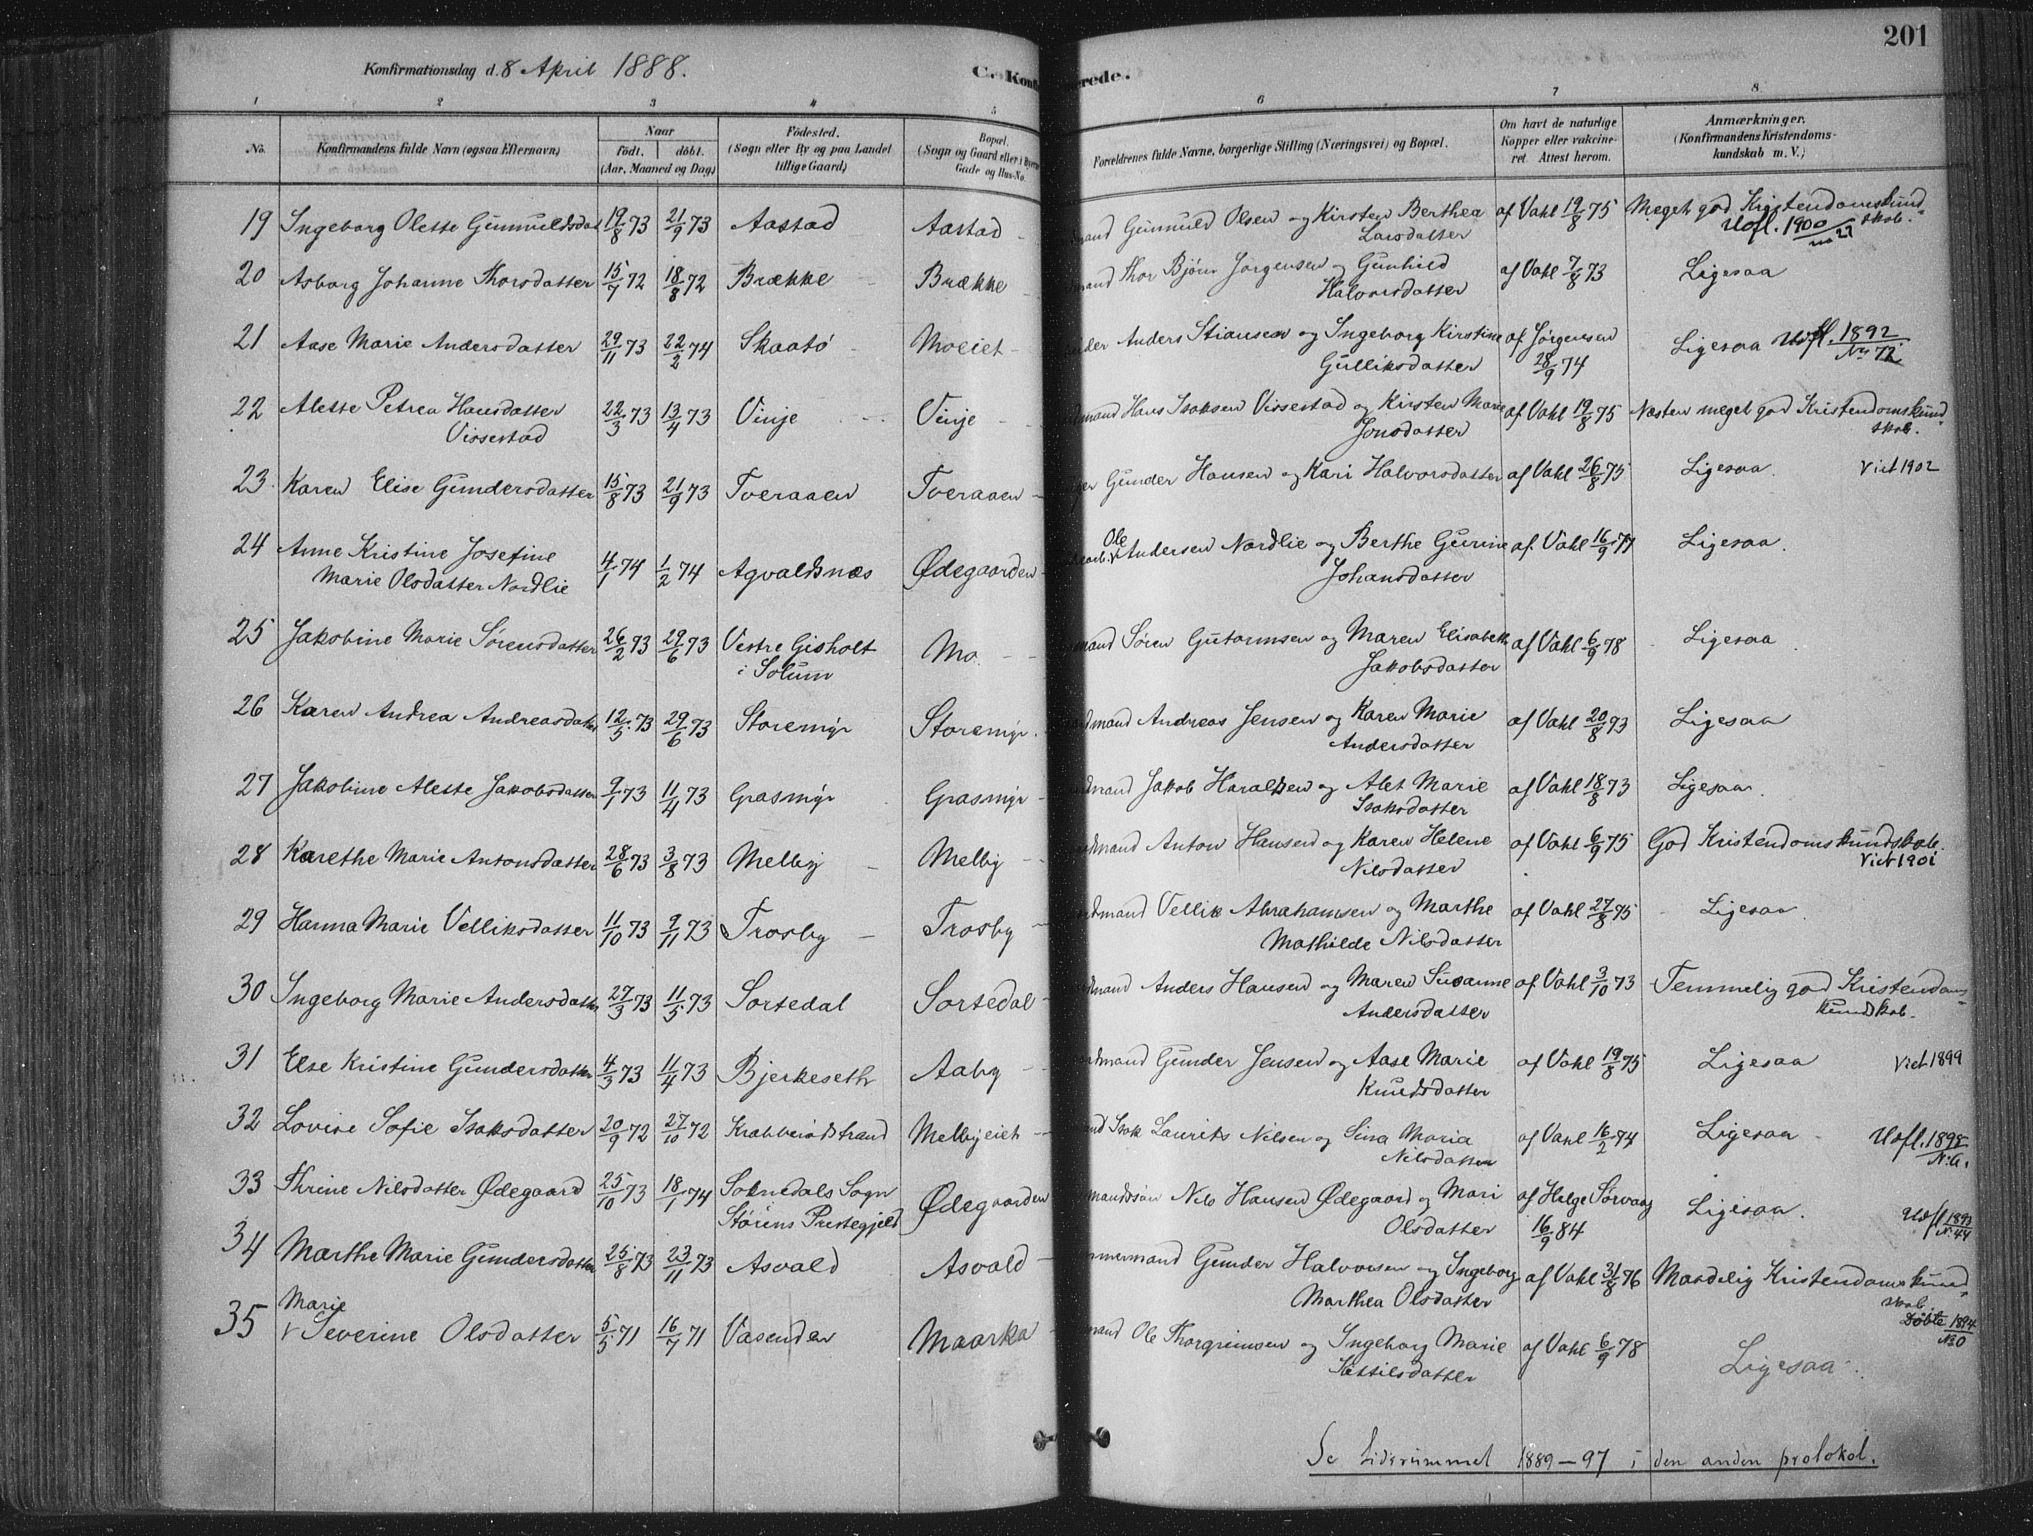 201
Konfirmationsdag d. 8 April 1888.
C. Konfirmerede.
1 2 3 4 5 6 7 8
No. Konfirmandens fulde Navn (ogsaa Efternavn) Naar født. døbt. (Aar, Maaned og Dag) Fødested. (Sogn eller By og paa Landet tillige Gaard) Bopæl. (Sogn og Gaard eller i Byerne Gade og Hus-No. Forældrenes fulde Navne, borgerlige Stilling (Næringsvei) og Bopæl. Om havt de naturlige Kopper eller vakcineret. Attest herom. Anmærkninger. (Konfirmandens Kristendomskundskab m. V.)
19 Ingeborg Olette Gunnuldsdat 19/8 73 21/9 73 Aastad Aastad mand Gunnuld Olsen og Kirsten Berthea Larsdatter af Vahl 19/8 75 Meget god Kristendomskundskab. Udfl. 1900 no 27
20 Asborg Johanne Thorsdatter 15/7 72 18/8 72 Brække Brække mand Thor Bjørn Jørgensen og Gunhild Halvorsdatter af Vahl 7/8 73 Ligesaa
21 Aase Marie Andersdatter 29/11 73 22/2 74 Skaatø Moeiet Anders Stiansen og Ingeborg Kirstine Gulliksdatter af Jørgensen 28/9 74 Ligesaa Udfl. 1892 No 72
22 Alette Petrea Hansdatter Vissestad 22/3 73 13/4 73 Vinje Vinje mand Hans Isaksen Vissestad og Kirsten Marie Jonsdatter af Vahl 19/8 75 Næsten meget god Kristendomskundskab.
23 Karen Elise Gundersdatter 15/8 73 21/9 73 Tveraaen Tveraaen Gunder Hansen og Kari Halvorsdatter af Vahl 26/8 75 Ligesaa. Viet 1902
24 Anne Kristine Josefine Marie Olsdatter Nordlie 4/1 74 1/2 74 Agvaldsnæs Ødegaarden Ole Andersen Nordlie og Berthe Gurine Johansdatter af Vahl 16/9 77 Ligesaa.
25 Jakobine Marie Sørensdatter 26/2 73 29/6 73 Vestre Gisholt i Solum Mo mand Søren Gutormsen og Maren Elisabeth Jakobsdatter af Vahl 6/9 78 Ligesaa
26 Karen Andrea Andreasdatter 12/5 73 29/6 73 Storemyr Storemyr. mand Andreas Jensen og Karen Marie Andersdatter af Vahl 20/8 73 Ligesaa
27 Jakobine Alette Jakobsdatter 9/1 73 11/4 73 Grasmyr Grasmyr mand Jakob Haraldsen og Alet Marie Isaksdatter af Vahl 18/8 73 Ligesaa.
28 Karethe Marie Antonsdatter 28/6 73 3/8 73 Melby Melby mand Anton Hansen og Karen Helene Nilsdatter af Vahl 6/9 75 God Kristendomskundskab. Viet 1901
29 Hanna Marie Velliksdatter 11/10 73 9/11 73 Trosby Trosby mand Vellik Abrahamsen og Marthe Mathilde Nilsdatter af Vahl 27/8 75 Ligesaa.
30 Ingeborg Marie Andersdatter 27/3 73 11/5 73 Sortedal Sortedal mand Anders Hansen og Maren Susanne Andersdatter af Vahl 3/10 73 Temmelig god Kristendomskundskab.
31 Else Kristine Gundersdatter 4/3 73 11/4 73 Bjerkeseth Aaby mand Gunder Jensen og Aase Marie Knudsdatter af Vahl 19/8 75 Ligesaa Viet 1899
32 Lovise Sofie Isaksdatter 20/9 72 27/10 72 Krabberødstrand Melbyeiet Isak Laurits Nilsen og Sina Maria Nilsdatter af Vahl 16/2 84 Ligesaa Udfl. 1898
33 Thrine Nilsdatter Ødegaard 25/10 73 18/1 74 Soknedals Sogn Størens Prestegjeld Ødegaarden Nils Hansen Ødegaard og Mari Olsdatter af Helge Sørvaag 16/9 84 Ligesaa. Udfl 1893 N. 44
34 Marthe Marie Gundersdatter 25/8 73 23/11 73 Asvald Asvald mand Gunder Halvorsen og Ingeborg Marthea Olsdatter af Vahl 31/8 76 Maadelig Kristendomskundskab.
35 Marie Severine Olsdatter 5/5 71 16/7 71 Vasenden Maarka mand Ole Thorgrimsen og Ingeborg Marie Kettilsdatter af Vahl 6/9 78 Ligesaa. Døbte 1894
Se Siderummet 1889-97 i den anden protokol.